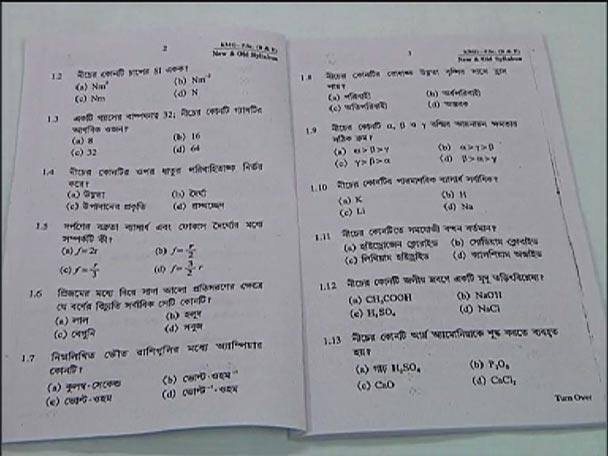 2
KMG - P.Sc. (B & E)
New & Old Syllabus
1.2 নীচের কোনটি চাপের SI একক?
(a) Nm² (b) Nm⁻²
(c) Nm (d) N
1.3 একটি গ্যাসের বাষ্পঘনত্ব 32; নীচের কোনটি গ্যাসটির
আণবিক ওজন?
(a) 8 (b) 16
(c) 32 (d) 64
1.4 নীচের কোনটির ওপর ধাতুর পরিবাহিতাঙ্ক নির্ভর
করে?
(a) উষ্ণতা (b) দৈর্ঘ্য
(c) উপাদানের প্রকৃতি (d) প্রস্থচ্ছেদ
1.5 দর্পণের বক্রতা ব্যাসার্ধ এবং ফোকাস দৈর্ঘ্যের মধ্যে
সম্পর্কটি কী?
(a) f = 2r (b) f = r/2
(c) f = r/3 (d) f = 3/2 · r
1.6 প্রিজমের মধ্যে দিয়ে সাদা আলো প্রতিসরণের ক্ষেত্রে
যে বর্ণের বিচ্যুতি সর্বাধিক সেটি কোনটি?
(a) লাল (b) হলুদ
(c) বেগুনি (d) সবুজ
1.7 নিম্নলিখিত ভৌত রাশিগুলির মধ্যে অ্যাম্পিয়ার
কোনটি?
(a) কুলম্ব-সেকেন্ড (b) ভোল্ট·ওহম⁻¹
(c) ভোল্ট·ওহম (d) ভোল্ট⁻¹·ওহম
3
KMG - P.Sc. (B & E)
New & Old Syllabus
1.8 নীচের কোনটির রোধাঙ্ক উষ্ণতা বৃদ্ধির সাথে হ্রাস
পায়?
(a) পরিবাহী (b) অর্ধপরিবাহী
(c) অতিপরিবাহী (d) অন্তরক
1.9 নীচের কোনটি α, β ও γ রশ্মির আয়নায়ন ক্ষমতার
সঠিক ক্রম?
(a) α > β > γ (b) α > γ > β
(c) γ > β > α (d) β > α > γ
1.10 নীচের কোনটির পারমাণবিক ব্যাসার্ধ সর্বাধিক?
(a) K (b) H
(c) Li (d) Na
1.11 নীচের কোনটিতে সমযোজী বন্ধন বর্তমান?
(a) হাইড্রোজেন ক্লোরাইড (b) সোডিয়াম ক্লোরাইড
(c) লিথিয়াম হাইড্রাইড (d) ক্যালশিয়াম অক্সাইড
1.12 নীচের কোনটি জলীয় দ্রবণে একটি মৃদু তড়িৎবিশ্লেষ্য?
(a) CH₃COOH (b) NaOH
(c) H₂SO₄ (d) NaCl
1.13 নীচের কোনটি আর্দ্র অ্যামোনিয়াকে শুষ্ক করতে ব্যবহৃত
হয়?
(a) গাঢ় H₂SO₄ (b) P₂O₅
(c) CaO (d) CaCl₂
Turn Over